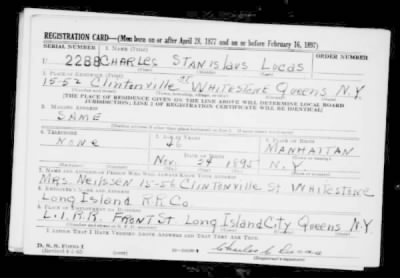 REGISTRATION CARD—(Men born on or after April 28, 1877 and on or before February 16, 1897)
SERIAL NUMBER 1. NAME (Print) ORDER NUMBER
U 2288 CHARLES STANISLAUS LUCAS
2. PLACE OF RESIDENCE (Print)
15-52 Clintonville ST WHITESTONE Queens N.Y.
[THE PLACE OF RESIDENCE GIVEN ON THE LINE ABOVE WILL DETERMINE LOCAL BOARD
JURISDICTION; LINE 2 OF REGISTRATION CERTIFICATE WILL BE IDENTICAL]
3. MAILING ADDRESS
SAME
4. TELEPHONE 5. AGE IN YEARS 6. PLACE OF BIRTH
NONE 46 MANHATTAN
DATE OF BIRTH
Nov. 1895 N.Y.
7. NAME AND ADDRESS OF PERSON WHO WILL ALWAYS KNOW YOUR ADDRESS
MRS. Neilssen 15-56 CLINTONVILLE ST. WHITESTONE
8. EMPLOYER'S NAME AND ADDRESS
Long Island R.R. Co.
9. PLACE OF EMPLOYMENT OR BUSINESS
L.I.R.R. FRONT St Long Island City Queens N.Y.
I AFFIRM THAT I HAVE VERIFIED ABOVE ANSWERS AND THAT THEY ARE TRUE.
D. S. S. Form 1
Charles S. Lucas